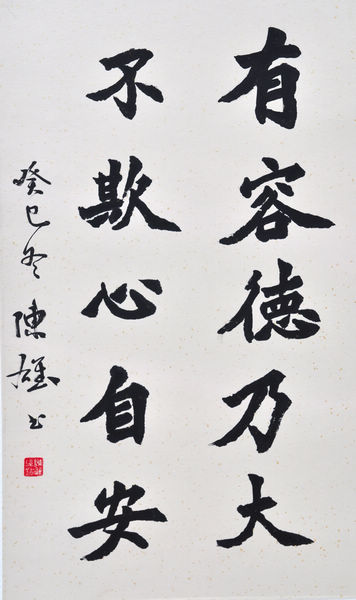 有容德乃大
不欺心自安
癸巳冬陳雄书